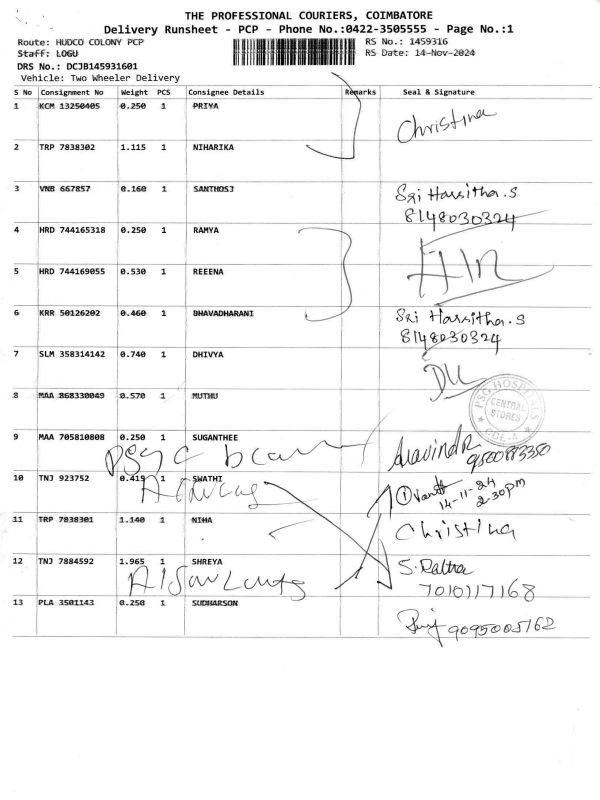 THE PROFESSIONAL COURIERS, COIMBATORE
Delivery Runsheet - PCP - Phone No.:0422-3505555 - Page No.:1
Route: HUDCO COLONY PCP RS No.: 1459316
Staff: LOGU RS Date: 14-Nov-2024
DRS No.: DCJB145931601
Vehicle: Two Wheeler Delivery
S No Consignment No Weight PCS Consignee Details Remarks Seal & Signature
1 KCM 13250405 0.250 1 PRIYA
Christina
2 TRP 7838302 1.115 1 NIHARIKA
3 VNB 667857 0.160 1 SANTHOSJ Sri Harsitha.S
8148030324
4 HRD 744165318 0.250 1 RAMYA
5 HRD 744169055 0.530 1 REEENA
6 KRR 50126202 0.460 1 BHAVADHARANI Sri Harsitha.S
8148030324
7 SLM 358314142 0.740 1 DHIVYA
8 MAA 868330049 0.570 1 MUTHU
PSG HOSPITALS
CENTRAL
STORES
CCE-4
9 MAA 705810808 0.250 1 SUGANTHEE Aravind R
9500883350
PSG C
10 TNJ 923752 0.415 1 SWATHI
14-11-24
2-30pm
11 TRP 7838301 1.140 1 NIHA Christina
12 TNJ 7884592 1.965 1 SHREYA
7010117168
13 PLA 3501143 0.250 1 SUDHARSON
9095005162